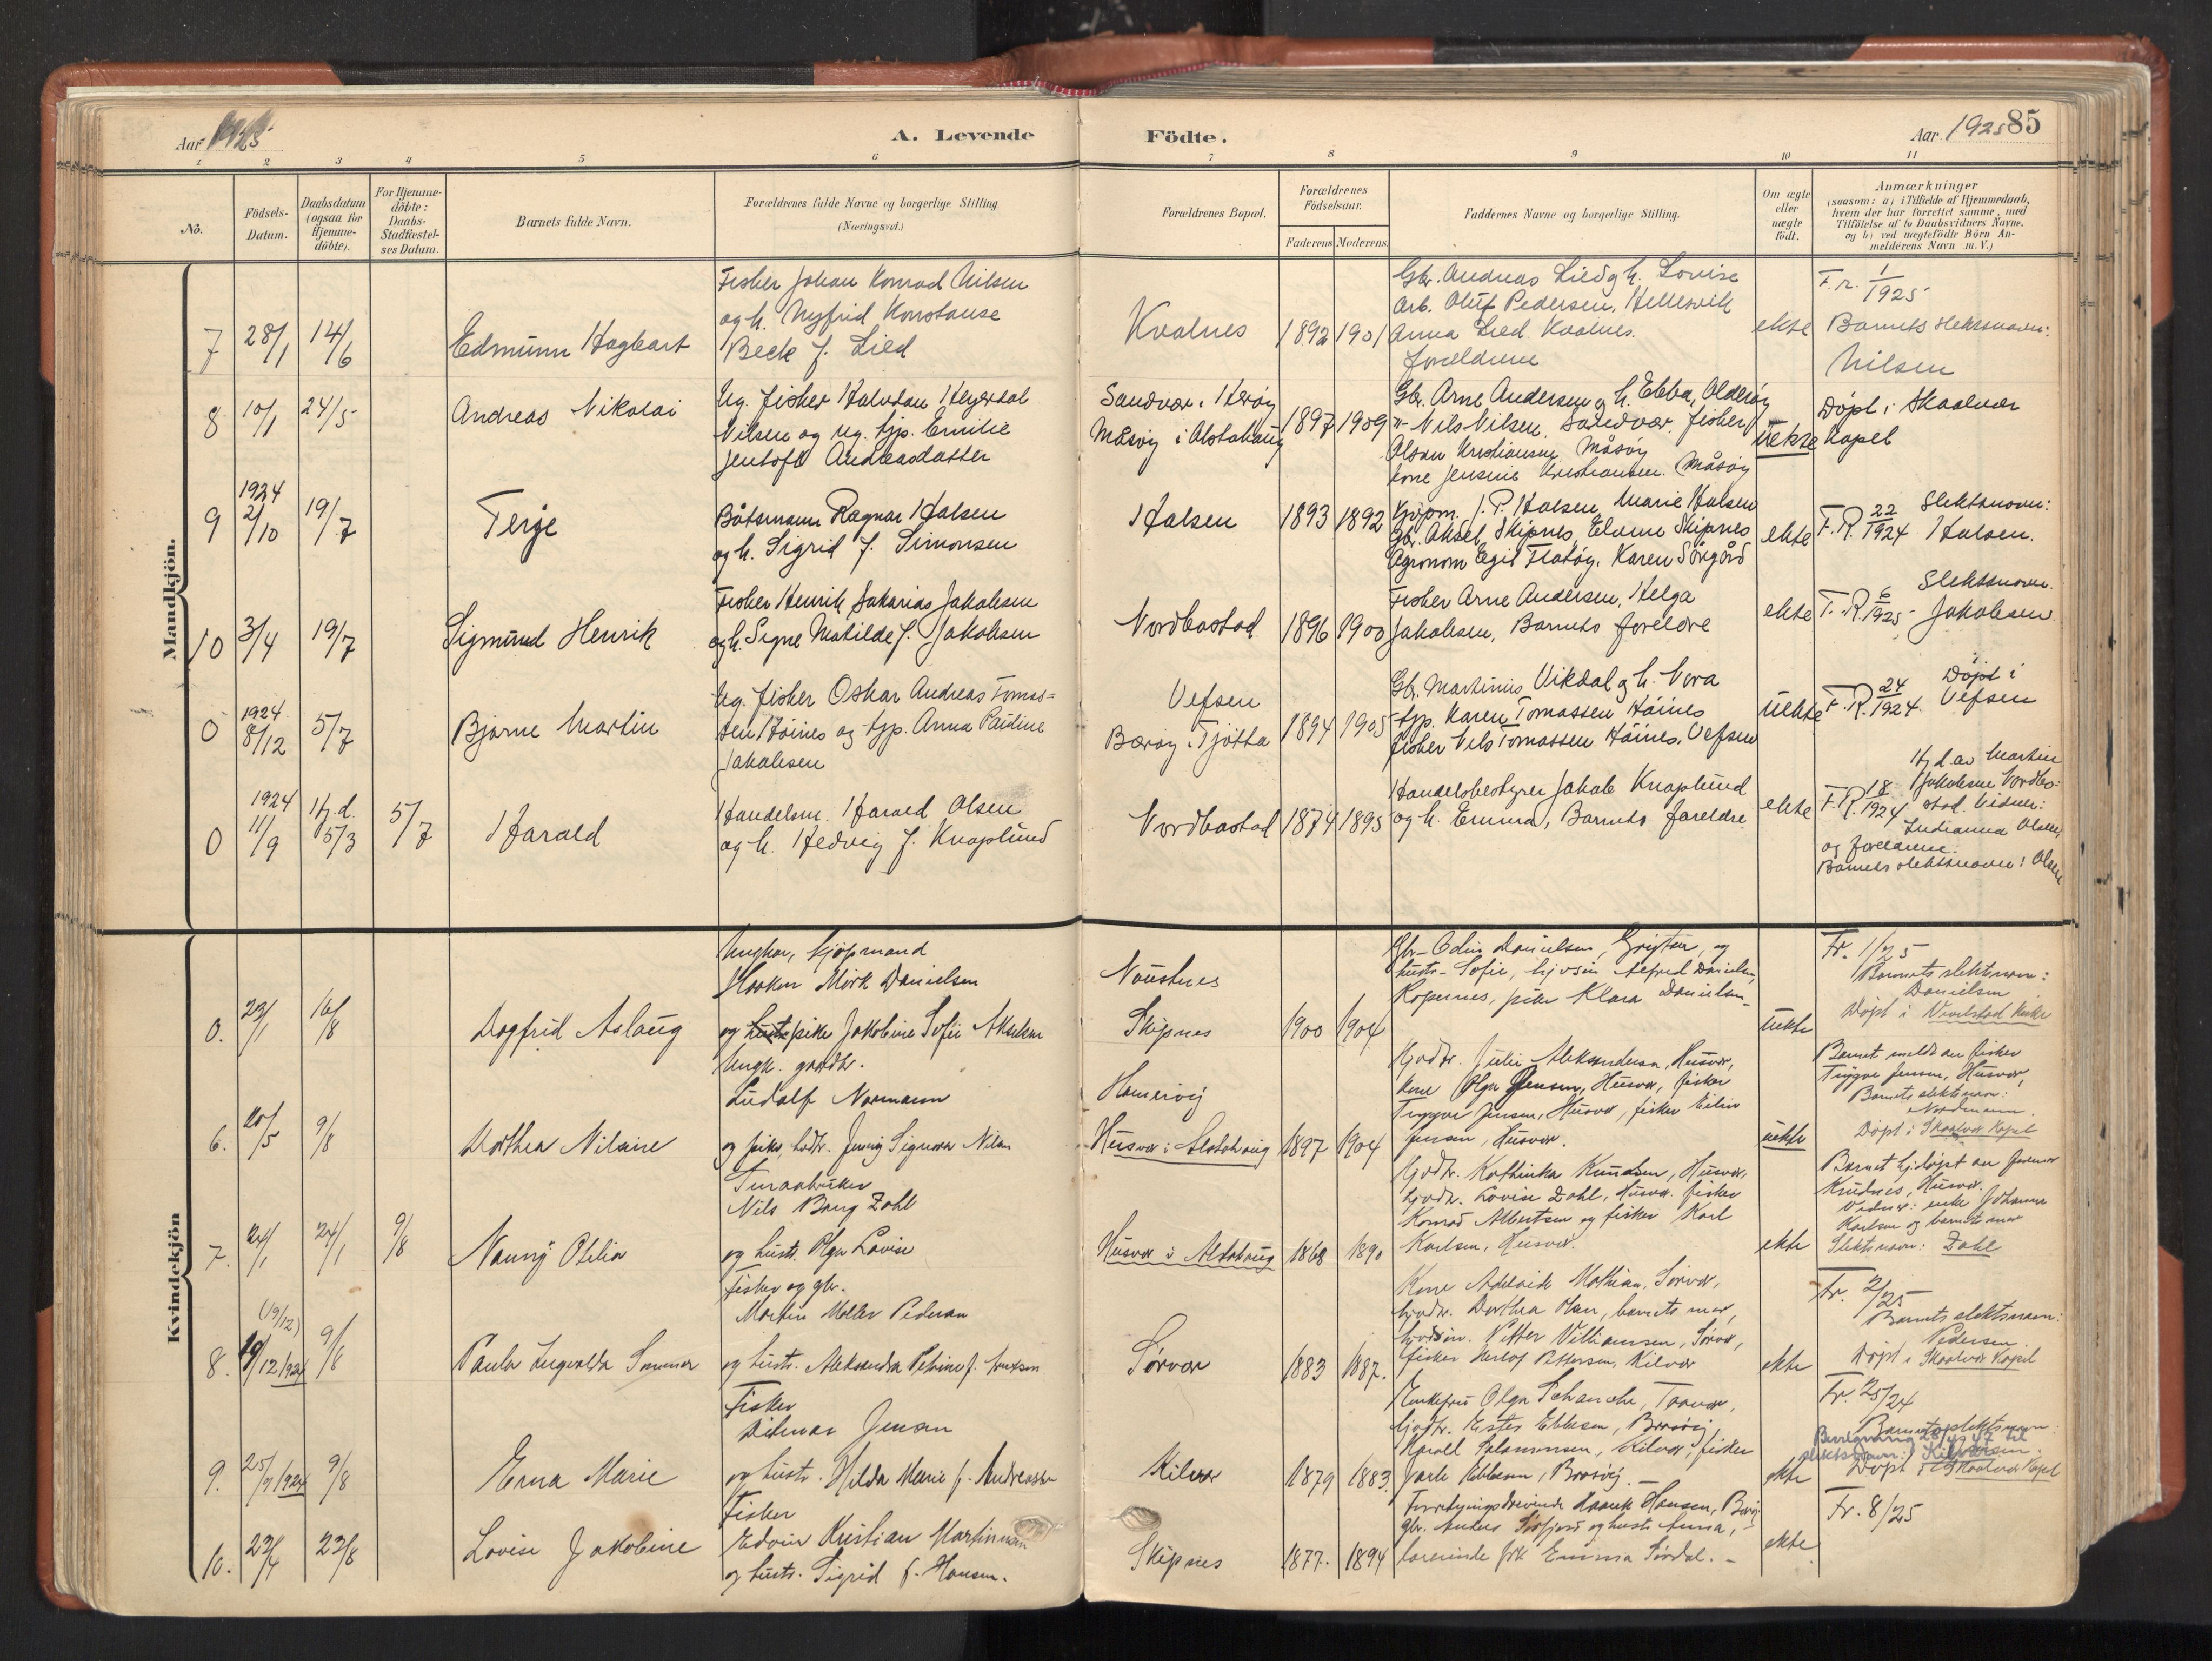 Aar 1925
A. Levende
Födte.
Aar. 1925
85
1 2 3 4 5 6 7 8 9 10 11
No.
Födsels-
Datum.
Daabsdatum
(ogsaa for
Hjemme-
döbte).
For Hjemme-
döbte:
Daabs-
Stadfæstel-
ses Datum.
Barnets fulde Navn.
Forældrenes fulde Navne og borgerlige Stilling
(Næringsvei.)
Forældrenes Bopæl.
Forældrenes
Födselsaar.
Faderens Moderens
Faddernes Navne og borgerlige Stilling.
Om ægte
eller
uægte
födt.
Anmærkninger
(saasom: a) i Tilfælde af Hjemmedaab,
hvem der har forrettet samme, med
Tilföielse af to Daabsvidners Navne.
og b) ved uægtefödte Börn An-
melderens Navn m. V.)
Mandkjön.
7
28/1
14/6
Edmunn Hagbart
Fisker Johan Konrad Nilsen
og h. Nyfrid Konstanse
Beck f. Lied
Kvalnes
1892 1901
Gbr. Andreas Lied og h. Lovise
Arb. Oluf Pedersen, Hellesvik
Anna Lied Kvalnes.
foreldrene
ekte
F.r. 1/1925
Barnets slektsnavn:
Nilsen
8
10/1
24/5
Andreas Nikolai
Ug. fisker Halvdan Hegerdal
Nilsen og ug. tjp. Emilie
Jentoft Andreasdatter
Sandvær i Herøy
Måsøy i Alstahaug
1897 1909
Gbr. Arne Andersen og h. Ebba, Olderøy
"- Nils Nilsen, Sandvær, fisker
Olsan Kristiansen Måsøy
kone Jensine Kristiansen. Måsøy
uekte
Døpt i Skaalvær
Kapel
9
1924
2/10
19/7
Terje
Båtsmann Ragnar Halsen
og h. Sigrid f. Simonsen
Halsen
1893 1892
Kjøpm. J. P. Halsen, Marie Halsen
Gbr. Aksel Skipnes, Elvine Skipnes
Agronom Egil Flatøy. Karen Sørgård
ekte
F.R. 22/1924
Slektsnavn:
Halsen.
10
3/4
19/7
Sigmund Henrik
Fisker Henrik Sakarias Jakobsen
og h. Signe Matilde f. Jakobsen
Nordbostad
1896 1900
Fisker Arne Andersen, Helga
Jakobsen, Barnets foreldre
ekte
F.R. 6/1925
Slektsnavn.
Jakobsen
0
1924
8/12
5/7
Bjarne Martin
Ug. fisker Oskar Andreas Tomas-
sen Høines og tjp. Anna Pauline
Jakobsen
Vefsen
Bærøy i Tjøtta
1894 1905
Gbr. Martinus Vikdal og h. Nora
tjp. Karen Tomassen Høines
fisker Nils Tomassen Høines, Vefsen
uekte
F.R. 24/1924
Døpt i
Vefsen
0
1924
11/9
Hj.d.
5/3
5/7
Harald
Handelsm. Harald Olsen
og h. Hedvig f. Knaplund
Nordbostad
1874 1895
Handelsbestyrer Jakob Knaplund
og h. Emma, Barnets foreldre
ekte
F.R. 18/1924
Hj.d. av Martin
Jakobsen Nordbo-
stad. Vidner:
Indianna Olsen
og foreldrene.
Barnets slektsnavn: Olsen
Kvindekjön
0.
23/1
16/8
Dagfrid Aslaug
Ungkar, kjøpmand
Haakon Mørk Danielsen
og pike Jakobine Sofie Akselsen
Naustnes
Skipnes
1900 1904
Gbr. Odin Danielsen, og
hustr. Sofie, Alfred Danielsen,
pike Klara Danielsen
uekte
Fr. 1/25
Barnets slektsnavn:
Danielsen
Døpt i Vevelstad Kirke
6.
20/5
9/8
Dorthea Nilsine
Ungk. gaardbr.
Ludolf Normann
og pike, Jenny Signora Nilsen
Husvær i Alstahaug
1897 1904
Gjødtr. Julie Aleksandersen, Husvær,
kone Olga Jensen, Husvær, fisker
Trygve Jensen, Husvær, fisker
Jensen, Husvær.
uekte
Barnet meldt av fisker
Trygve Jensen, Husvær,
Barnets slektsnavn:
Nordmann.
Døpt i Skaalvær Kapel
7.
24/1
24/1
9/8
Nanny Otilia
Smaabruker
Nils Bang Zahl
og hustr. Olga Lovise
Husvær i Alstahaug
1868 1890
Kathinka Knudsen, Husvær,
Lovise Zahl, Husvær, fisker
Konrad Albertsen og fisker Karl
Karlsen, Husvær.
ekte
Barnet hj.døpt av
Husvær.
Vidner: enke Johanna
Karlsen og barnets mor
Slektsnavn: Zahl
8.
(19/12)
19/12 1924
9/8
Paula Ingvalda Synnøve
Fisker og gbr.
Martin Møller Pedersen
og hustr. Aleksandra Petrine f.
Sørvær
1883 1887.
Kone Adelaide Mathisen, Sørvær,
Dorthea Olsen, barnets mor,
Petter Villiamsen, Sørvær,
fisker Pettersen, Kilvær
ekte
Fr. 2/25
Barnets slektsnavn:
Pedersen
Døpt i Skaalvær Kapel
9.
25/9 1924
9/8
Erna Marie
Fisker
Ditmar Jensen
og hustr. Hilda Marie f. Andreassen
Kilvær
1879 1883.
Enkefru Olga Schanche, Tranvær,
Ester Ebbesen, Brasøy
Harald Salamonsen, Kilvær, fisker
Jarle Ebbesen, Brasøy.
ekte
Fr. 25/24
Barnets slektsnavn:
Bevilgning
slektsnavn: Kilvær
Døpt i Skaalvær Kapel
10.
23/4
23/8
Lovise Jakobine
Fisker
Edvin Kristian Martinussen
og hustr. Sigrid f. Hansen.
Skipnes
1877. 1894
Forretningsdrivende Hansen,
gbr. Anders Sørfjord og hustr. Anna,
lærerinde frk Emma Sørdal.
ekte
Fr. 8/25